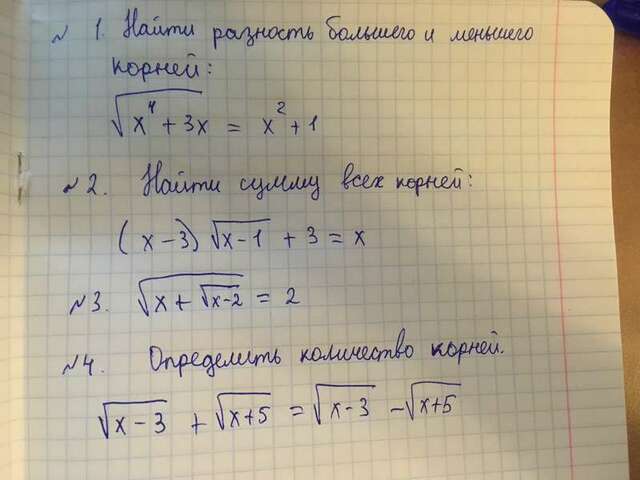 № 1. Найти разность большего и меньшего
корней:
√(x⁴ + 3x) = x² + 1
№ 2. Найти сумму всех корней:
(x − 3) √(x − 1) + 3 = x
№ 3. √(x + √(x − 2)) = 2
№ 4. Определить количество корней.
√(x − 3) + √(x + 5) = √(x − 3) − √(x + 5)